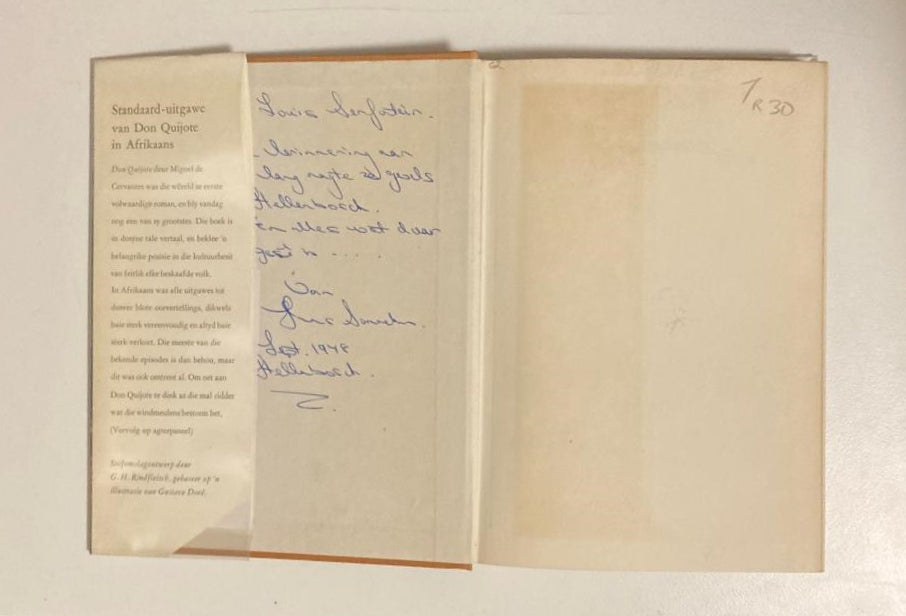 Standaard-uitgawe
van Don Quijote
in Afrikaans
Don Quijote deur Miguel de
Cervantes was die wêreld se eerste
volwaardige roman, en bly vandag
nog een van sy grootstes. Die boek is
in dosyne tale vertaal, en beklee 'n
belangrike posisie in die kultuurbesit
van feitlik elke beskaafde volk.
In Afrikaans was alle uitgawes tot
dusver blote oorvertellings, dikwels
baie sterk vereenvoudig en altyd baie
sterk verkort. Die meeste van die
bekende episodes is dan behou, maar
dit was ook omtrent al. Om net aan
Don Quijote te dink as die mal ridder
wat die windmeulens bestorm het,
(Vervolg op agterpaneel)
Stofomslagontwerp deur
G. H. Rindfleisch, gebaseer op 'n
illustrasie van Gustave Doré.
Louis
herinnering aan
lang nagte
Stellenbosch.
En alles wat daar
Van
Sept. 1978
Stellenbosch.
R 30